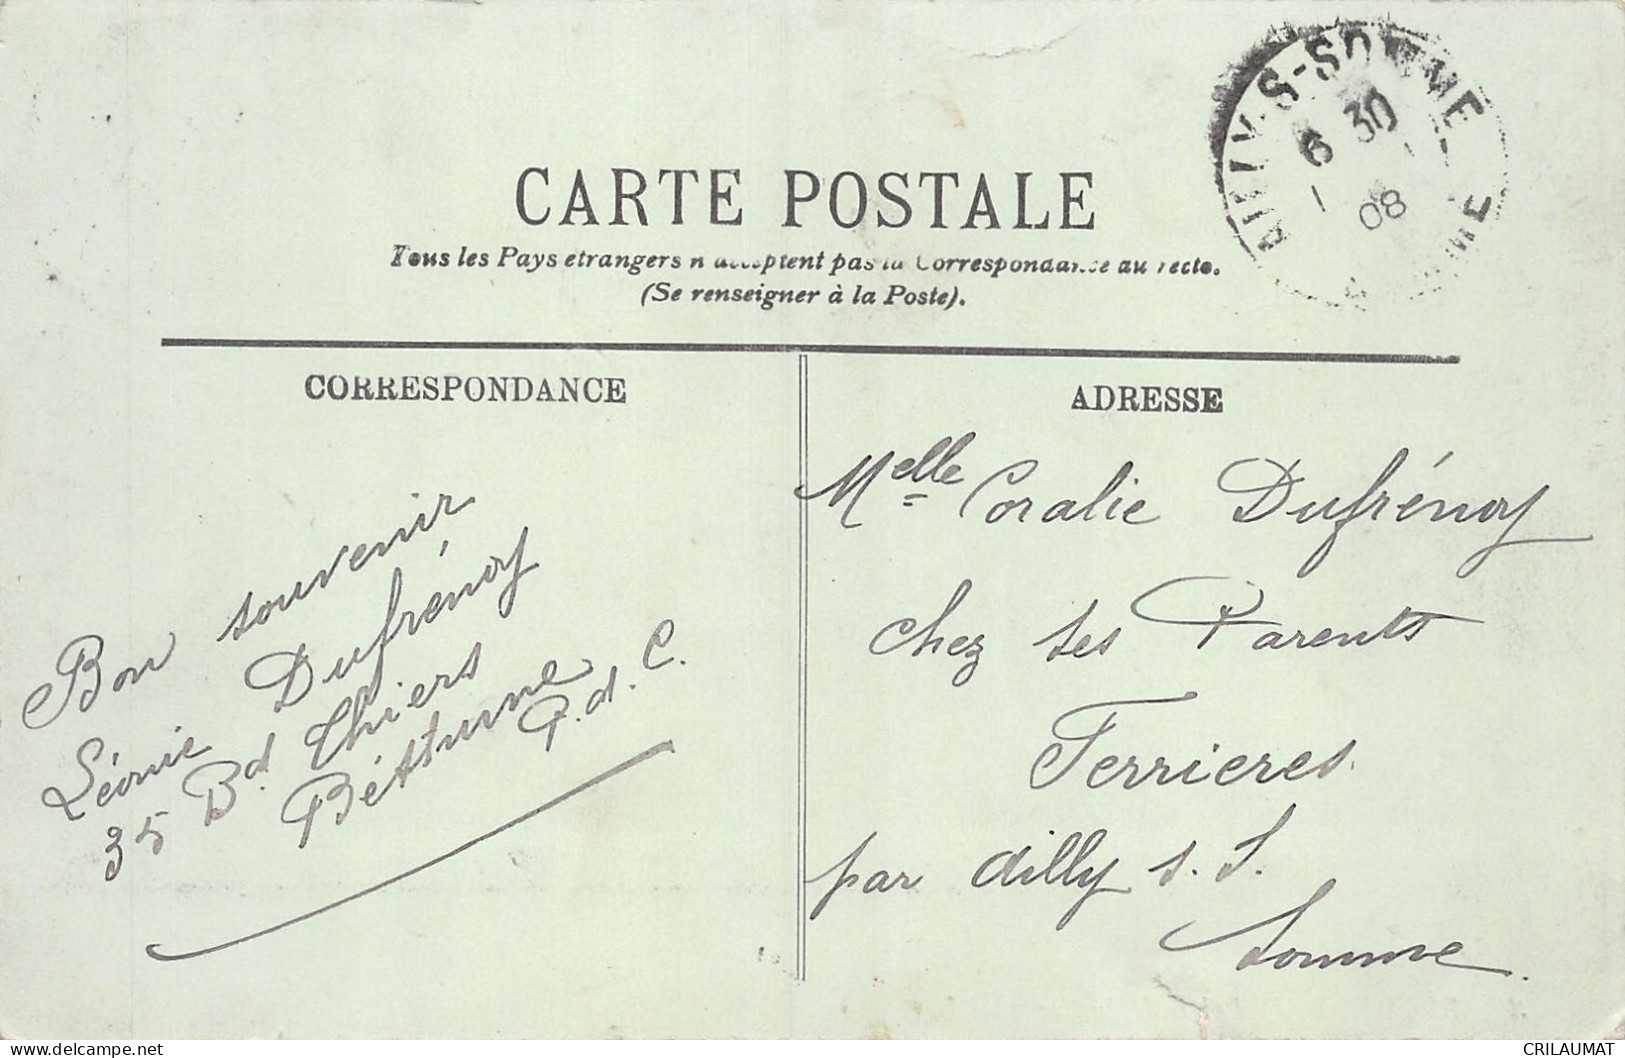 CARTE POSTALE
Tous les Pays etrangers n'acceptent pas la Correspondance au recto.
(Se renseigner à la Poste).
AILLY-S-SOMME
6 30
08
SOMME
CORRESPONDANCE
Bon souvenir
Léonie Dufrénoy
35 Bd. Thiers
Béthune
P. d. C.
ADRESSE
Melle Coralie Dufrénoy
chez ses Parents
Ferrieres
par Ailly s. S.
Somme.
CRILAUMAT